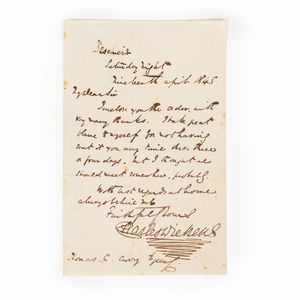 Saturday Night
Nineteenth April 1845
My Dear Sir
I inclose you the order, with
very many thanks. I take great
blame to myself for not having
sent it you any time these three
or four days. But I thought we
should meet somewhere, probably.
With best regards at home
always believe me
Faithfully Yours
Charles Dickens
Thomas C. Esquire